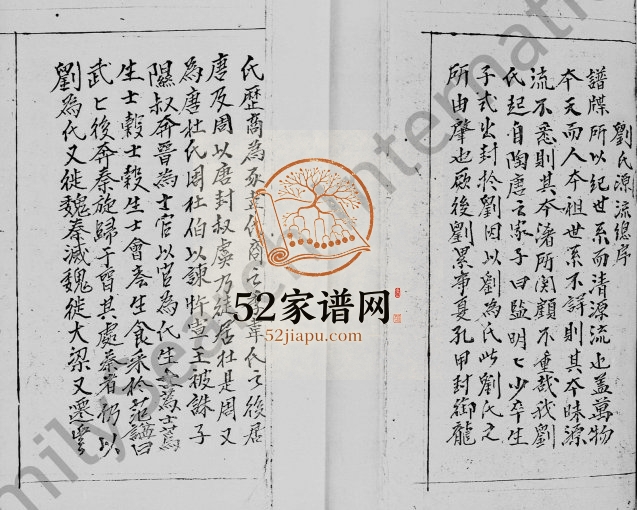 劉氏源流總序
譜牒所以紀世系而清源流也蓋萬物
本天而人本祖世系不詳則其本昧源
流不悉則其本潛所関顧不重哉我劉
氏起自陶唐云家子曰監明亡少卒生
子式出封於劉因以劉為氏此劉氏之
所由肇也厥後劉累事夏孔甲封御龍
氏歷商為豕韋氏商之韋氏之後居
唐及周以唐封叔虞乃徙居杜是周又
為唐杜氏周杜伯以諫忤宣王被誅子
隰叔奔晉為士官以官為氏生士蒍士蒍
生士穀士穀生士會食采於范諡曰
武亡後奔秦旋歸于晉其處秦者仍以
劉為氏又徙魏秦滅魏徙大梁又還
52家谱网
52jiapu.com